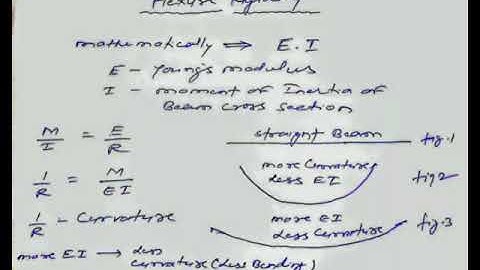 Flexural Rigidity
mathematically ⇒ E.I
E - Young's modulus
I - moment of Inertia of
Beam cross section
M/I = E/R
1/R = M/EI
1/R - Curvature
more EI → less
curvature (Less Bending)
straight Beam fig.1
more Curvature
Less EI fig 2
more EI
Less Curvature fig.3